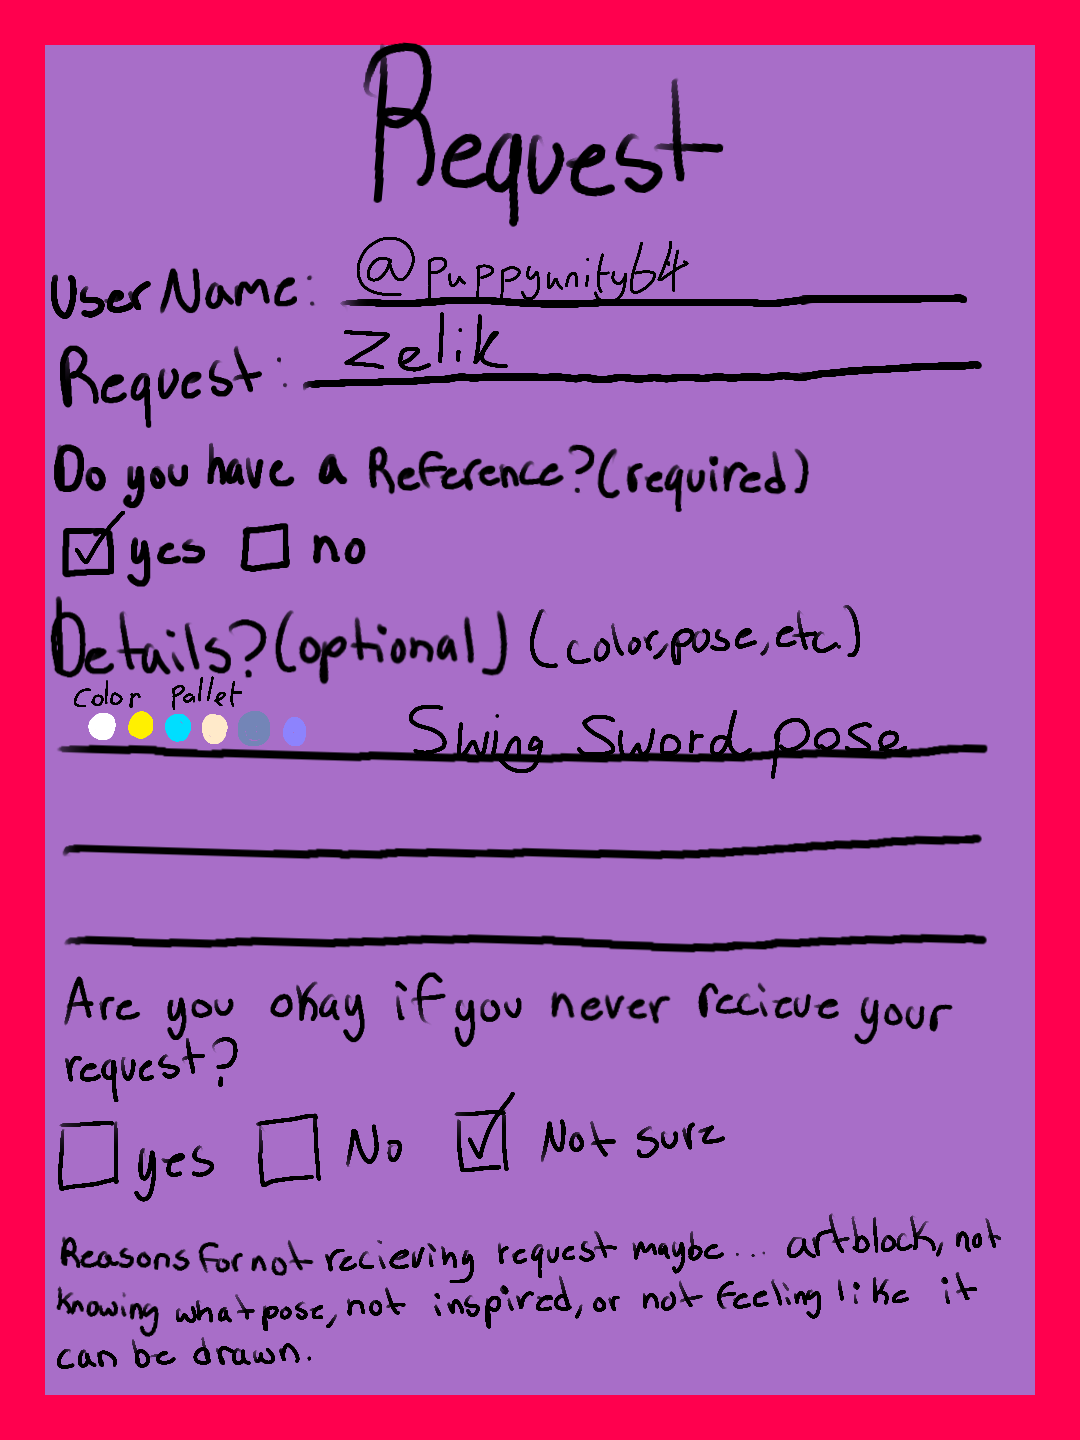 Request
User Name: @puppyunity64
Request: Zelik
Do you have a Reference? (required)
yes no
Details? (optional) (color, pose, etc.)
Color Pallet
Swing Sword pose
Are you okay if you never recieve your
request?
yes No Not sure
Reasons for not recieving request maybe... artblock, not
knowing what pose, not inspired, or not feeling like it
can be drawn.